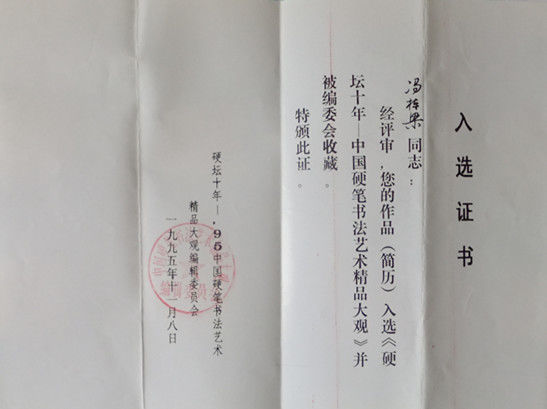 入选证书
冯栋梁同志：
经评审，您的作品（简历）入选《硬
坛十年—中国硬笔书法艺术精品大观》并
被编委会收藏。
特颁此证。
硬坛十年—，95中国硬笔书法艺术
精品大观编辑委员会
一九九五年十一月八日